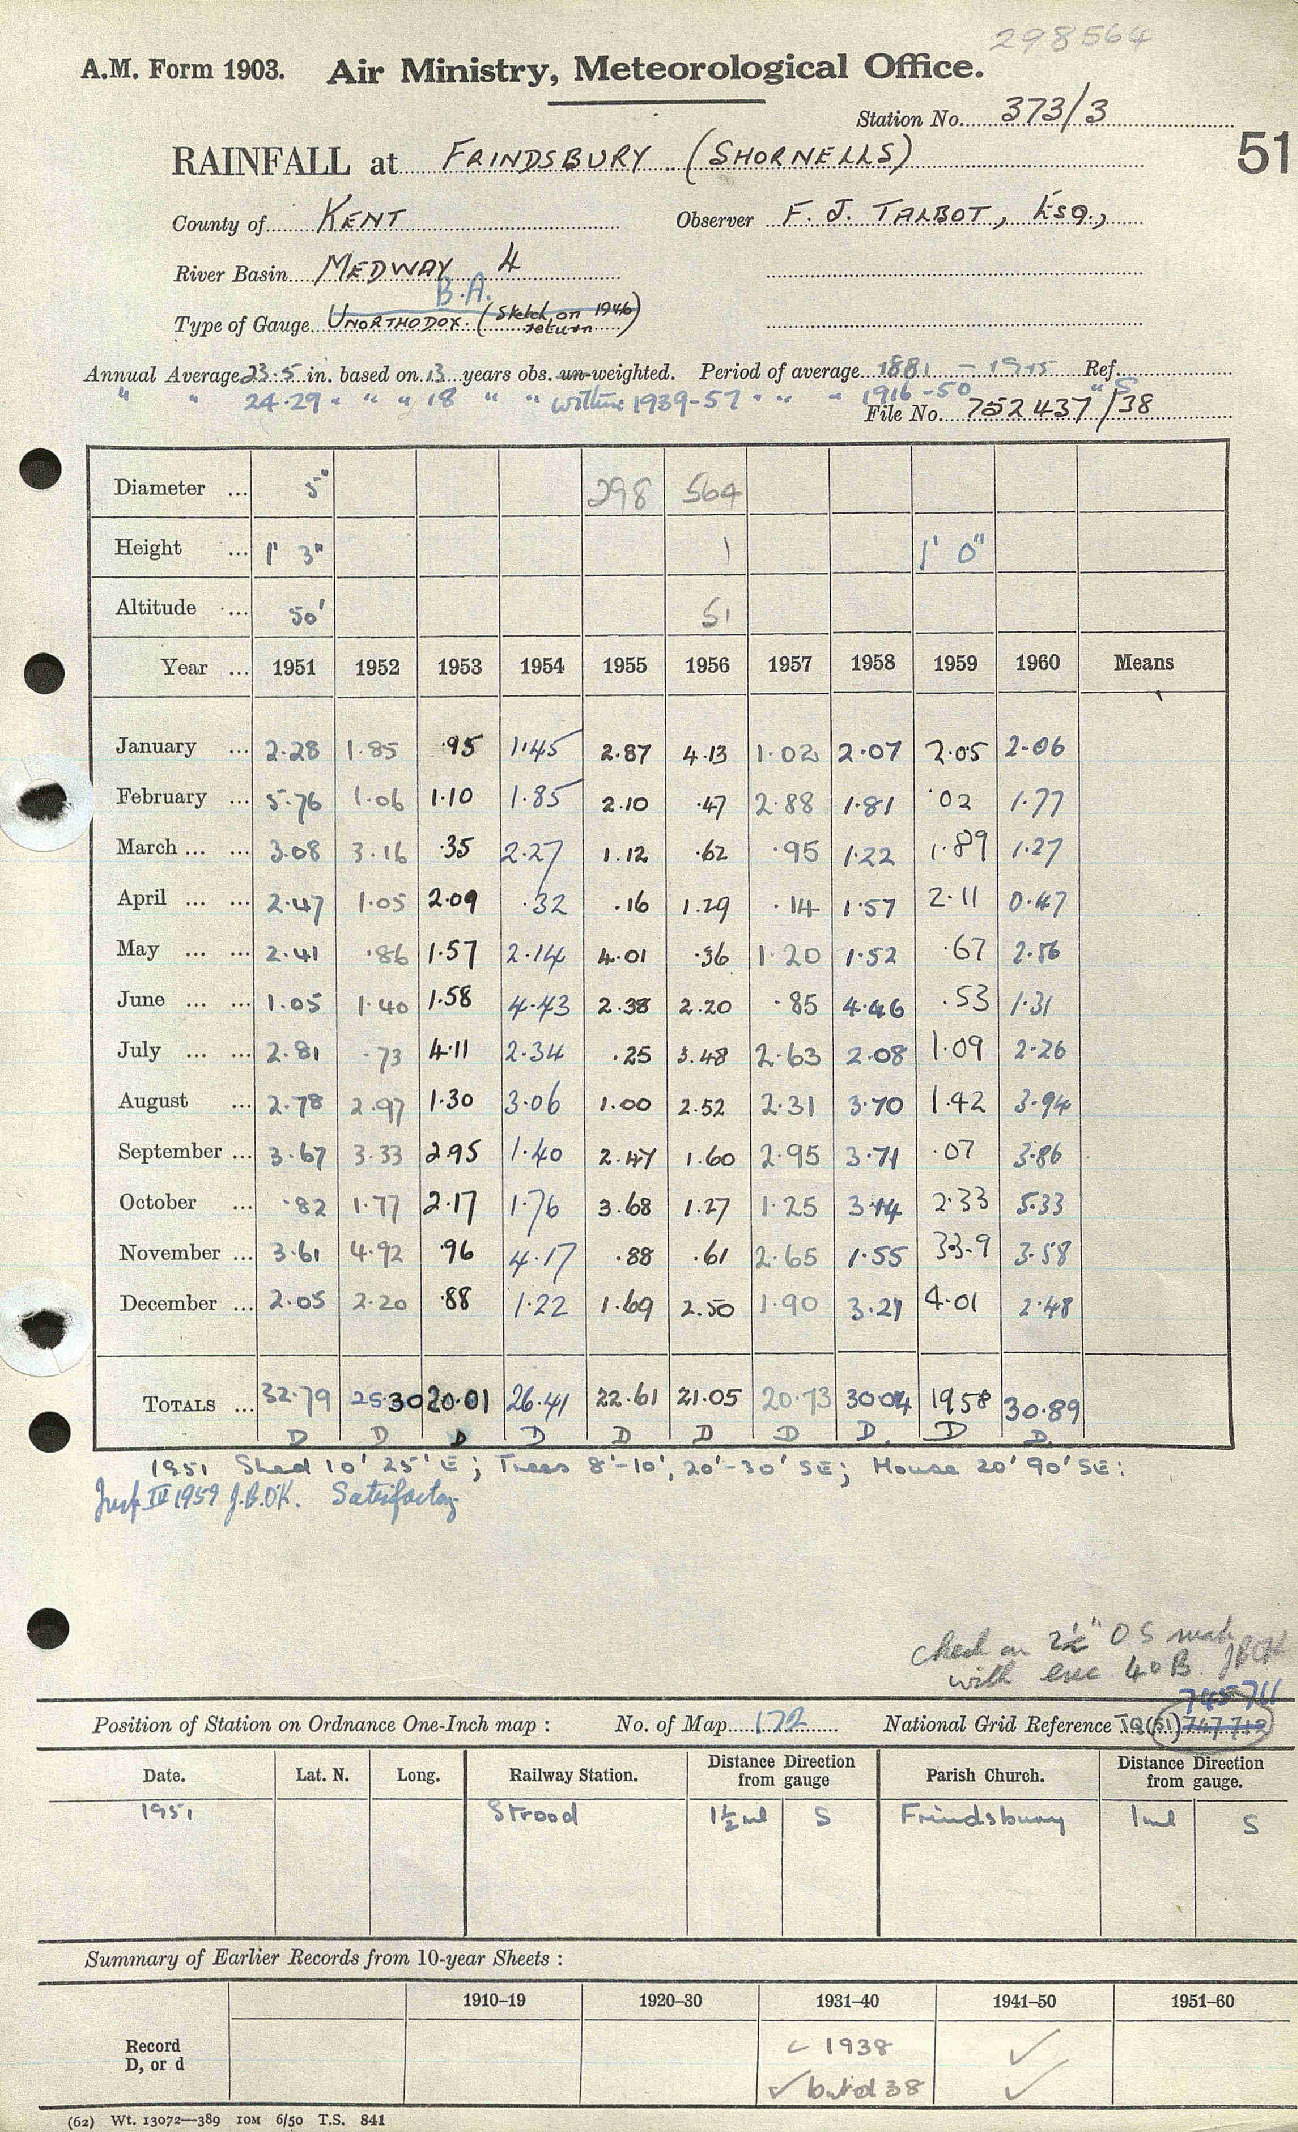 298564
A.M. Form 1903. Air Ministry, Meteorological Office.
Station No. 373/3
51
RAINFALL at FRINDSBURY (SHORNELLS)
County of KENT Observer F. J. TALBOT, Esq.,
River Basin MEDWAY 4
B.A.
Type of Gauge UNORTHODOX. (Sketch on 1946 return)
Annual Average 23.5 in. based on 13 years obs. un-weighted. Period of average 1881 - 1915 Ref.
" " 24.29 " " " 18 " " within 1939-57 " " " 1916-50 " S
File No. 752437/38
Diameter ... 5" 298 564
Height ... 1' 3" 1 1' 0"
Altitude ... 50' 51
Year ... 1951 1952 1953 1954 1955 1956 1957 1958 1959 1960 Means
January ... 2.28 1.85 .95 1.45 2.87 4.13 1.02 2.07 2.05 2.06
February ... 5.76 1.06 1.10 1.85 2.10 .47 2.88 1.81 .02 1.77
March ... ... 3.08 3.16 .35 2.27 1.12 .62 .95 1.22 1.89 1.27
April ... ... 2.47 1.05 2.09 .32 .16 1.29 .14 1.57 2.11 0.47
May ... ... 2.41 .86 1.57 2.14 4.01 .36 1.20 1.52 .67 2.56
June ... ... 1.05 1.40 1.58 4.43 2.38 2.20 .85 4.46 .53 1.31
July ... ... 2.81 .73 4.11 2.34 .25 3.48 2.63 2.08 1.09 2.26
August ... 2.78 2.97 1.30 3.06 1.00 2.52 2.31 3.70 1.42 3.94
September ... 3.67 3.33 2.95 1.40 2.47 1.60 2.95 3.71 .07 3.86
October ... .82 1.77 2.17 1.76 3.68 1.27 1.25 3.14 2.33 5.33
November ... 3.61 4.92 .96 4.17 .88 .61 2.65 1.55 33.9 3.58
December ... 2.05 2.20 .88 1.22 1.69 2.50 1.90 3.21 4.01 2.48
TOTALS ... 32.79 25.30 20.01 26.41 22.61 21.05 20.73 30.04 1958 30.89
D D D D D D D D. D D.
1951 Shed 10' 25' E; Trees 8'-10', 20'-30' SE; House 20' 90' SE:
Insp. IV 1959 J.B.O'K. Satisfactory
Ched on 2½" OS map
with exc 40B. JBOK
745711
Position of Station on Ordnance One-Inch map : No. of Map 172 National Grid Reference TQ(51) 747712
Date. Lat. N. Long. Railway Station. Distance from gauge Direction Parish Church. Distance from gauge. Direction
1951 Strood 1½ml S Frindsbury 1ml S
Summary of Earlier Records from 10-year Sheets :
1910–19 1920–30 1931–40 1941–50 1951–60
Record D, or d
1938 ✓
✓ but d 38 ✓
(62) Wt. 13072—389 10M 6/50 T.S. 841